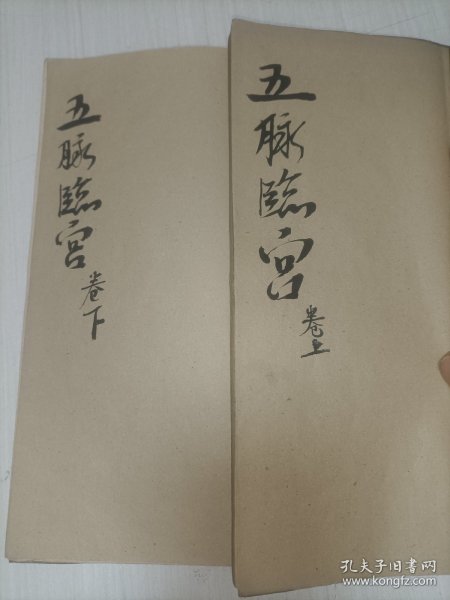 五脉臨宫
卷上
五脉臨宫
卷下
孔夫子旧书网
www.kongfz.com